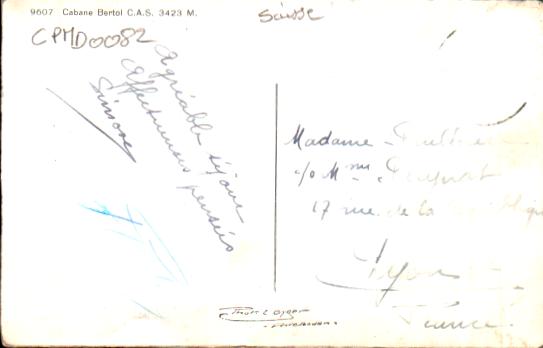 9607 Cabane Bertol C.A.S. 3423 M.
Suisse
CPMD0082
Agréable séjour
Affectueuses pensées
Simone
Madame
c/o Mme
17 rue de la République
Lyon
France